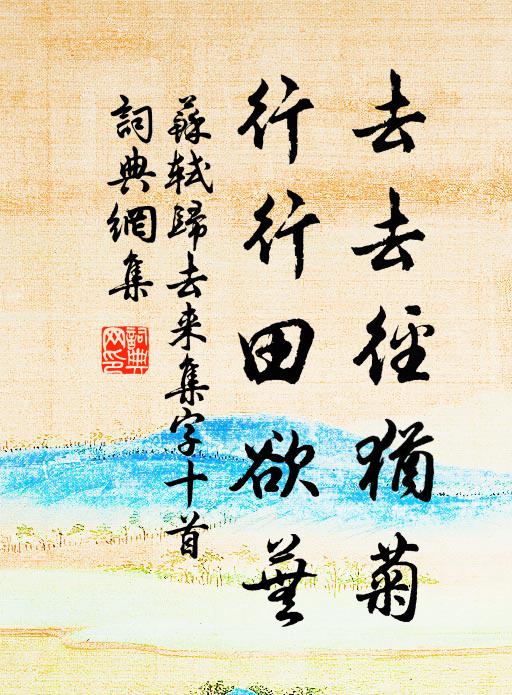 去去徑猶菊
行行田欲蕪
蘇軾歸去来集字十首
詞典網集
詞典網印